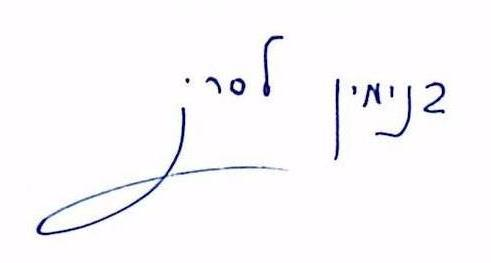 בנימין לסרי